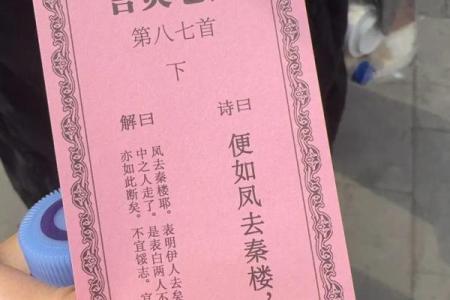 第八七首
下
诗曰
便如凤去秦楼，
解曰
凤去秦楼耶。表明伊人去矣
中之人走了。是表白两人不
亦如此断矣。不宜馁志。宜